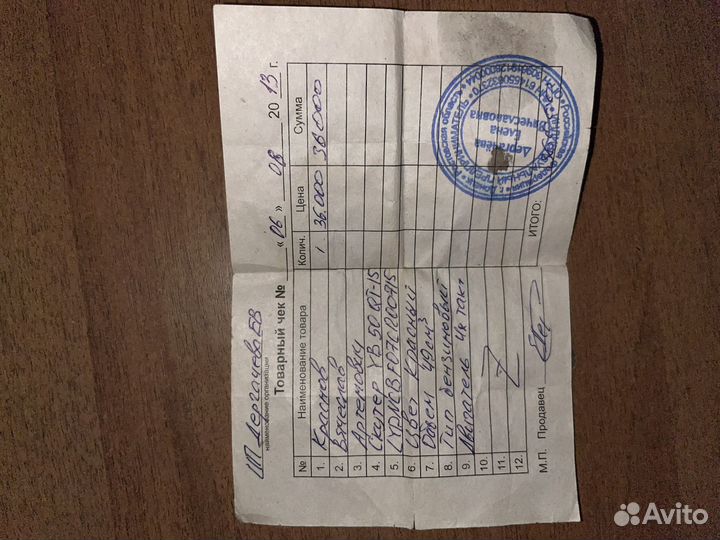 ИП Дергачева ЕВ
наименование организации
Товарный чек №
"06" 08 2013 г.
№ Наименование товара Колич. Цена Сумма
1. Краснов 1 36000 36000
2. Вячеслав
3.
4. Скутер YB50QT-15
5.
6. Цвет красный
7. Объем 49см³
8. Тип бензиновый
9. Двигатель 4х такт
10.
11.
12.
ИТОГО:
М.П. Продавец
Российская Федерация • г. Донецк • Ростовская область •
ИНДИВИДУАЛЬНЫЙ ПРЕДПРИНИМАТЕЛЬ
Дергачева
Елена
Вячеславовна
Avito